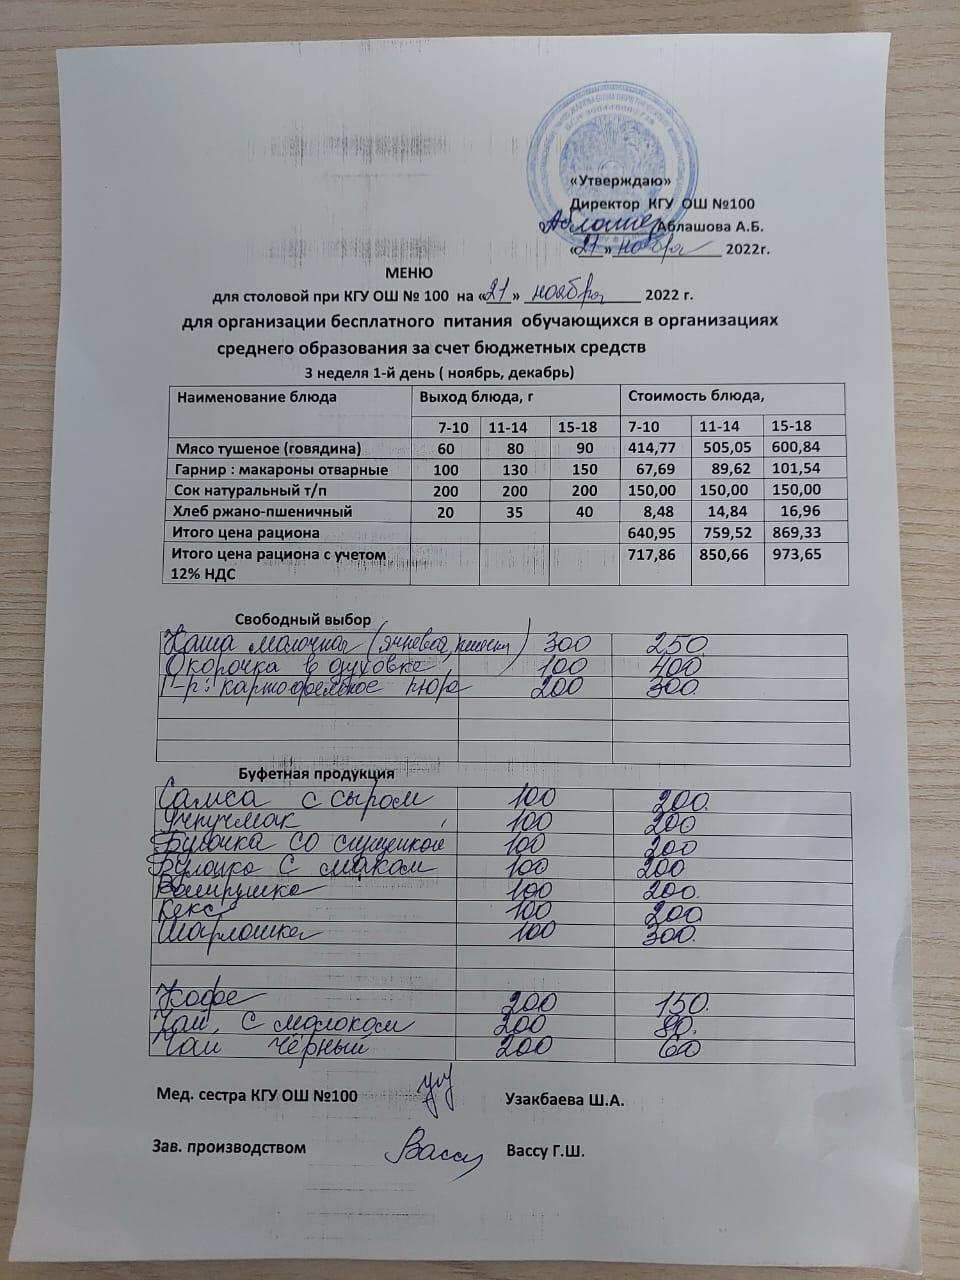 «Утверждаю»
Директор КГУ ОШ №100
Аблашова А.Б.
«21» ноября 2022г.
МЕНЮ
для столовой при КГУ ОШ № 100 на «21» ноября 2022 г.
для организации бесплатного питания обучающихся в организациях
среднего образования за счет бюджетных средств
3 неделя 1-й день ( ноябрь, декабрь)
Наименование блюда Выход блюда, г Стоимость блюда,
7-10 11-14 15-18 7-10 11-14 15-18
Мясо тушеное (говядина) 60 80 90 414,77 505,05 600,84
Гарнир : макароны отварные 100 130 150 67,69 89,62 101,54
Сок натуральный т/п 200 200 200 150,00 150,00 150,00
Хлеб ржано-пшеничный 20 35 40 8,48 14,84 16,96
Итого цена рациона 640,95 759,52 869,33
Итого цена рациона с учетом 717,86 850,66 973,65
12% НДС
Свободный выбор
Каша молочная 300 250
Окорочка в духовке 100 400
Г-р: картофельное пюре 200 300
Буфетная продукция
Самса с сыром 100 200
Учпучмак 100 200
Булочка со сгущенкой 100 200
Булочка с маком 100 200
Ватрушка 100 200
Кекс 100 200
Шарлотка 100 300
Кофе 200 150
Чай с молоком 200 80
Чай чёрный 200 60
Мед. сестра КГУ ОШ №100 Узакбаева Ш.А.
Зав. производством Вассу Вассу Г.Ш.